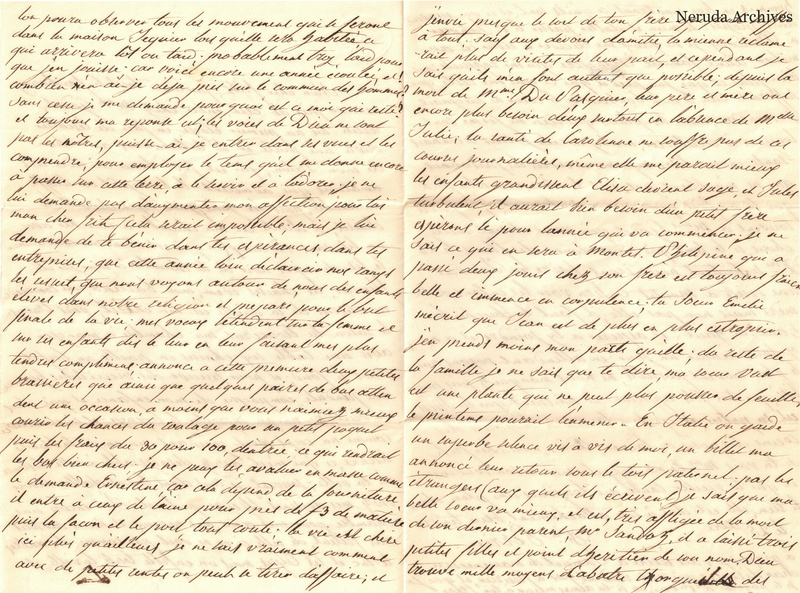 Neruda Archives
l'on pourra observer tous les mouvement qui se feront
dans la maison Seguier lorsqu'elle sera habitée ce
qui arrivera tôt ou tard. probablement trop tard pour
que j'en jouisse car voici encore une année écoulée, et
combien n'en ai-je deja pas sur le sommeu des hommes
sans cesse je me demande pourquoi est ce moi qui reste
et toujours ma reponse est; les voies de Dieu ne sont
pas les nôtres, puissé-ai-je entrer dans ses vues et les
comprendre; pour employer le tems qu'il me donne encore
à passer sur cette terre, à le servir et a l'adorer, je ne
lui demande pas d'augmenter mon affection pour toi
mon cher fils cela serait impossible. mais je lui
demande de te benir dans tes esperances dans tes
entreprises, que cette année loin d'éclaircir nos rangs
les resserre, que nous voyons autour de nous des enfants
elevés dans notre religion et preparés pour le but
finale de la vie; mes voeux s'étendent sur ta femme et
sur tes enfants dis le leur en leur faisant mes plus
tendres compliments. annonce a cette premiere deux petites
brassieres qui ainsi que quelques paires de bas atten
dent une occasion, à moins que vous n'aimiez mieux
courir les chances du roulage pour un petit paquet
puis les frais du 30 pour 100, d'entrée, ce qui rendrait
les bas bien chers. je ne peux les evaluer en masse comme
le demande Ernestine car cela dépend de la fourniture
il entre à ceux de laine pour près de f3 de matière
puis la façon et le port tout coute. la vie est chere
ici plus qu'ailleurs je ne sais vraiment comment
avec de petites rentes on peut se tirer d'affaire; et
j'envie presque le sort de ton frère
à tout. Sais aux devoirs d'amitié, la mienne réclame
rait plus de visites de leur part, et cependant je
sais qu'ils m'en font autant que possible; depuis la
mort de Mme Du Pasquier, leur père et mere ont
encore plus besoin d'eux surtout en l'absence de Melle
Julie; la santé de Carolenne ne souffre pas de ces
courses journalières, même elle me parait mieux
les enfants grandissent Elisa devient sage, et Jules
turbulent, il aurait bien besoin d'un petit frère
esperons le pour l'année qui va commencer. je ne
sais ce qui en sera à Montet. Philipine qui a
passé deux jours chez son frere est toujours
belle et immence en corpulence; ta soeur Emelie
m'ecrit que Jean est de plus en plus
j'en prends moins mon parti qu'elle. du reste de
la famille je ne sais que te dire, ma soeur
est une plante qui ne peut plus pousser de feuilles,
le printems pourait l'enmener. En Italie on garde
un superbe silence vis a vis de moi, un billet m'a
annoncé leur retour sous le toit paternel. par les
étrangers (aux quels ils écrivent) je sais que ma
belle soeur va mieux, et est très affligée de la mort
de son dernier parent Mr Sandoz, il a laissé trois
petites filles et point d'heritier de son nom. Dieu
trouve mille moyens d'abatre l'orgueil des